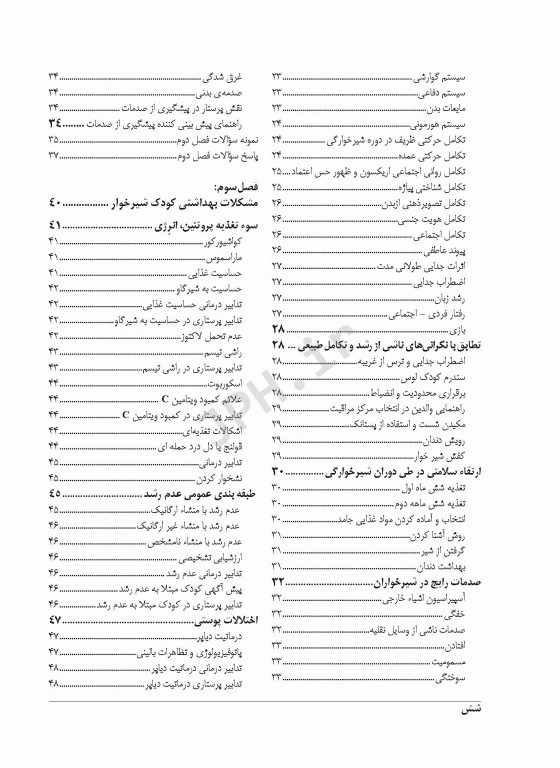 سیستم گوارشی ۲۳
سیستم دفاعی ۲۳
مایعات بدن ۲۳
سیستم هورمونی ۲۴
تکامل حرکتی ظریف در دوره شیرخوارگی ۲۴
تکامل حرکتی عمده ۲۴
تکامل روانی اجتماعی اریکسون و ظهور حس اعتماد ۲۵
تکامل شناختی پیاژه ۲۵
تکامل تصویرذهنی ازبدن ۲۶
تکامل هویت جنسی ۲۶
تکامل اجتماعی ۲۶
پیوند عاطفی ۲۶
اثرات جدایی طولانی مدت ۲۷
اضطراب جدایی ۲۷
رشد زبان ۲۷
رفتار فردی – اجتماعی ۲۷
بازی ۲۸
تطابق با نگرانی‌های ناشی از رشد و تکامل طبیعی ... ۲۸
اضطراب جدایی و ترس از غریبه ۲۸
سندرم کودک لوس ۲۸
برقراری محدودیت و انضباط ۲۸
راهنمایی والدین در انتخاب مرکز مراقبت ۲۹
مکیدن شست و استفاده از پستانک ۲۹
رویش دندان ۲۹
کفش شیر خوار ۲۹
ارتقاء سلامتی در طی دوران شیرخوارگی ۳۰
تغذیه شش ماه اول ۳۰
تغذیه شش ماهه دوم ۳۰
انتخاب و آماده کردن مواد غذایی جامد ۳۰
روش آشنا کردن ۳۱
گرفتن از شیر ۳۱
بهداشت دندان ۳۱
صدمات رایج در شیرخواران ۳۲
آسپیراسیون اشیاء خارجی ۳۲
خفگی ۳۲
صدمات ناشی از وسایل نقلیه ۳۲
افتادن ۳۳
مسمومیت ۳۳
سوختگی ۳۳
غرق شدگی ۳۴
صدمه‌ی بدنی ۳۴
نقش پرستار در پیشگیری از صدمات ۳۴
راهنمای پیش بینی کننده پیشگیری از صدمات ۳۴
نمونه سؤالات فصل دوم ۳۵
پاسخ سؤالات فصل دوم ۳۷
فصل سوم:
مشکلات بهداشتی کودک شیرخوار ۴۰
سوء تغذیه پروتئین، انرژی ۴۱
کواشیورکور ۴۱
ماراسموس ۴۱
حساسیت غذایی ۴۱
حساسیت به شیرگاو ۴۲
تدابیر درمانی حساسیت غذایی ۴۲
تدابیر پرستاری در حساسیت به شیرگاو ۴۲
عدم تحمل لاکتوز ۴۲
راشی تیسم ۴۳
تدابیر پرستاری در راشی تیسم ۴۳
اسکوربوت ۴۴
علائم کمبود ویتامین C ۴۴
تدابیر پرستاری در کمبود ویتامین C ۴۴
اشکالات تغذیه‌ای ۴۴
قولنج یا دل درد حمله ای ۴۴
تدابیر درمانی ۴۵
نشخوار کردن ۴۵
طبقه بندی عمومی عدم رشد ۴۵
عدم رشد با منشاء ارگانیک ۴۵
عدم رشد با منشاء غیر ارگانیک ۴۶
عدم رشد با منشاء نامشخص ۴۶
ارزشیابی تشخیصی ۴۶
تدابیر درمانی عدم رشد ۴۶
پیش آگهی کودک مبتلا به عدم رشد ۴۶
تدابیر پرستاری در کودک مبتلا به عدم رشد ۴۶
اختلالات پوستی ۴۷
درماتیت دیاپر ۴۷
پاتوفیزیولوژی و تظاهرات بالینی ۴۷
تدابیر درمانی درماتیت دیاپر ۴۸
تدابیر پرستاری درماتیت دیاپر ۴۸
شش